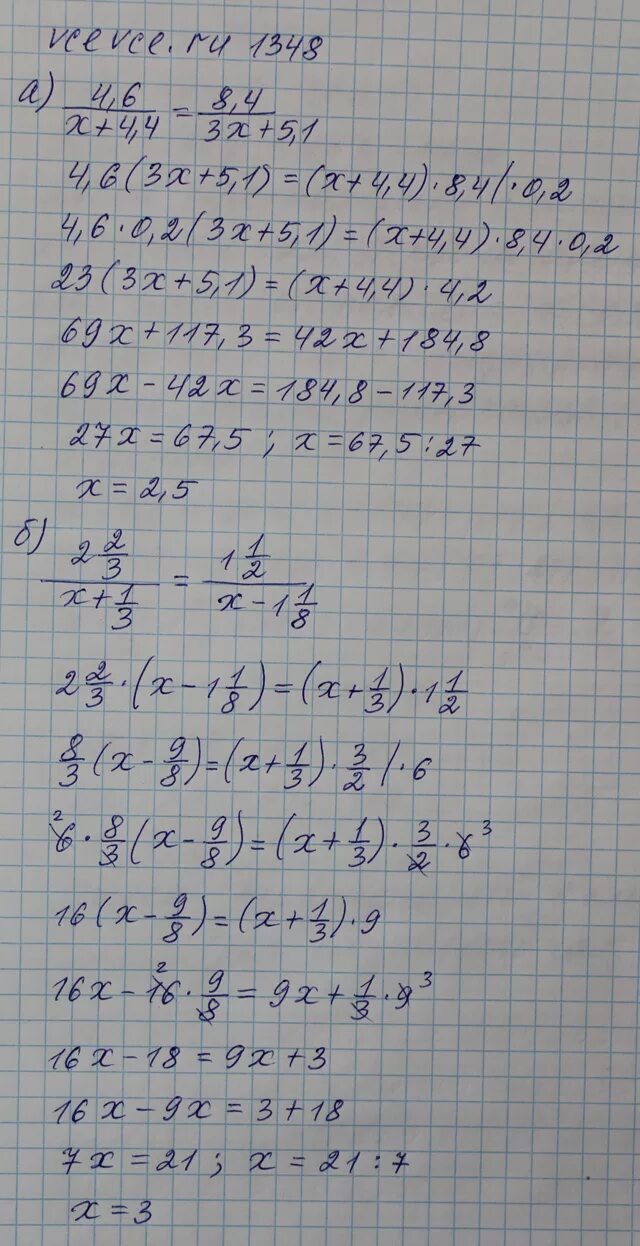 vcevce.ru 1348
а) 4,6/(x+4,4) = 8,4/(3x+5,1)
4,6(3x+5,1)=(x+4,4)·8,4/·0,2
4,6·0,2(3x+5,1)=(x+4,4)·8,4·0,2
23(3x+5,1)=(x+4,4)·4,2
69x+117,3=42x+184,8
69x-42x=184,8-117,3
27x=67,5; x=67,5:27
x=2,5
б) (2 2/3)/(x+1/3) = (1 1/2)/(x-1 1/8)
2 2/3·(x-1 1/8)=(x+1/3)·1 1/2
8/3(x-9/8)=(x+1/3)·3/2/·6
²6·8/3(x-9/8)=(x+1/3)·3/2·6³
16(x-9/8)=(x+1/3)·9
16x-16²·9/8=9x+1/3·9³
16x-18=9x+3
16x-9x=3+18
7x=21; x=21:7
x=3